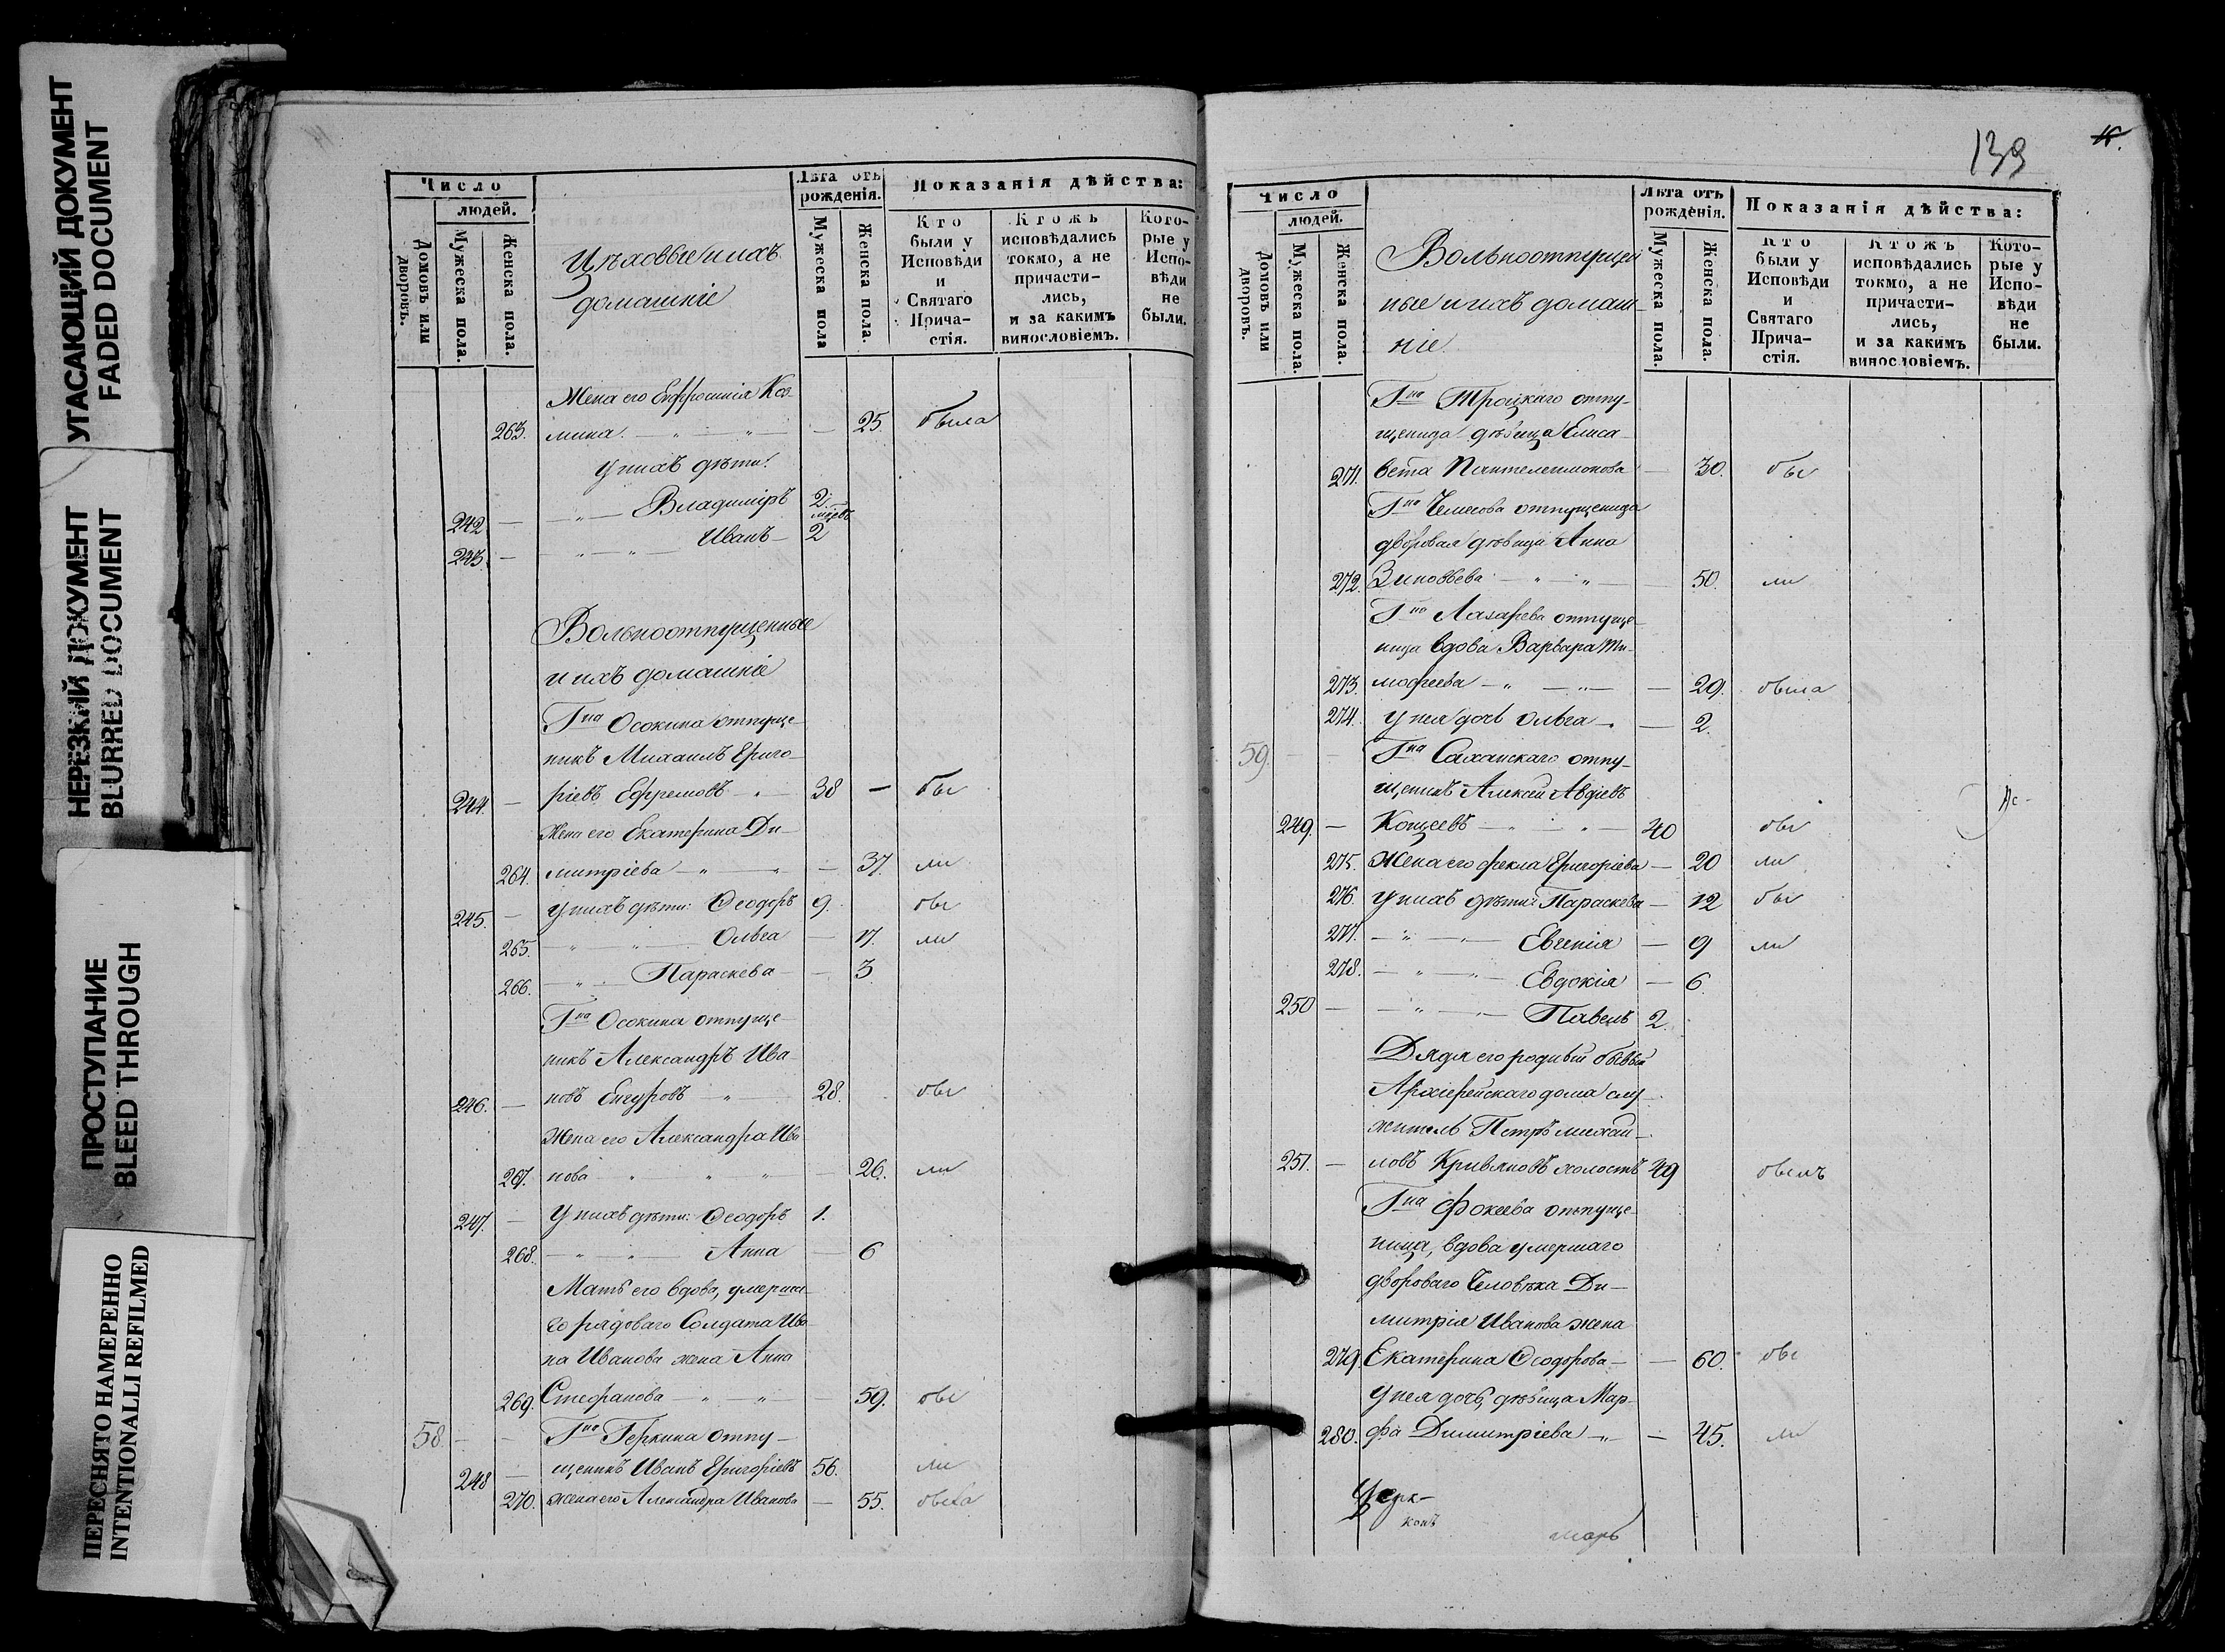 УГАСАЮЩИЙ ДОКУМЕНТ
FADED DOCUMENT
НЕРЕЗКИЙ ДОКУМЕНТ
BLURRED DOCUMENT
ПРОСТУПАНИЕ
BLEED THROUGH
ПЕРЕСНЯТО НАМЕРЕННО
INTENTIONALLI REFILMED
Число
людей.
Домовъ или дворовъ.
Мужеска пола.
Женска пола.
Цѣховые и ихъ
домашніе
Лѣта отъ рожденія.
Мужеска пола
Женска пола.
Показанія дѣйства:
Кто были у Исповѣди и Святаго Прича-
стія.
Ктожъ исповѣдались токмо, а не причасти-
лись, и за какимъ винословіемъ.
Кото-
рые у Испо-
вѣди не были.
Жена его Евфросинія Коз-
263. мина. — „ — „ — — 25. была
У нихъ дѣти:
242 — — „ — Владиміръ 2.
мѣсяцъ
243. — — „ — „ — Иванъ — 2
Вольноотпущенные
и ихъ домашніе
Гна Осокина отпуще-
никъ Михаилъ Григо-
244. — ріевъ Ефремовъ — „ — 38 — бы
Жена его Екатерина Ди-
264. митріева — „ — „ — 37. ли
245. — У нихъ дѣти: Ѳеодоръ 9. бы
265. — „ — „ — Ольга — 17. ли
266. — „ — Параскева — — 3
Гна Осокина отпуще-
никъ Александръ Ива-
246. — новъ — „ — 28. бы
Жена его Александра Ива-
267. нова — „ — „ — „ — 26. ли
247. — У нихъ дѣти: Ѳеодоръ 1.
268. — „ — „ — Анна — 6
Мать его вдова, умерша-
го рядоваго Солдата Ива-
на Иванова жена Анна
269. Стефанова — „ — „ — 59. бы
58. — — Гна Геркина отпу-
248 — щеникъ Иванъ Григоріевъ 56. ли
270. Жена его Александра Иванова — 55. была
139
Число
людей.
Домовъ или дворовъ.
Мужеска пола.
Женска пола.
Вольноотпущен
ные и ихъ домаш-
ніе.
Лѣта отъ рожденія.
Мужеска пола.
Женска пола.
Показанія дѣйства:
Кто были у Исповѣди и Святаго Прича-
стія.
Ктожъ исповѣдались токмо, а не причасти-
лись, и за какимъ винословіемъ.
Кото-
рые у Испо-
вѣди не были.
Гна Троцкаго отпу-
щеница дѣвица Елиса-
271. вета Пантелеимонова — 30. бы
Гна отпущеница
дворовая дѣвица Анна
272. Зиновьева — „ — „ — 50. ли
Гна Лазарева отпуще-
ница вдова Варвара Ти-
273. мофеева — „ — „ — — 29. была
274. У нея дочь Ольга — „ — 2.
59. — — Гна Саханскаго отпу-
щеникъ Алексей Авдіевъ
249. — Кощеевъ — „ — „ — 40 бы
275. Жена его Фекла Григоріева — 20 ли
276. У нихъ дѣти: Параскева — 12 бы
277. — „ — „ — Евгенія — 9 ли
278. — „ — „ — Евдокія — 6.
250 — — „ — „ — Павелъ 2.
Дядя его родный бывый
Архіерейскаго дома слу-
житель Петръ Михаи-
251. — ловъ Кривяковъ холостъ 49 былъ
Гна Фокеева отпуще-
ница, вдова умершаго
двороваго Человѣка Ди-
митрія Иванова жена
279. Екатерина Ѳеодорова — — 60. бы
У нея дочь, дѣвица Мар-
280. фа Димитріева — „ — — 45. ли